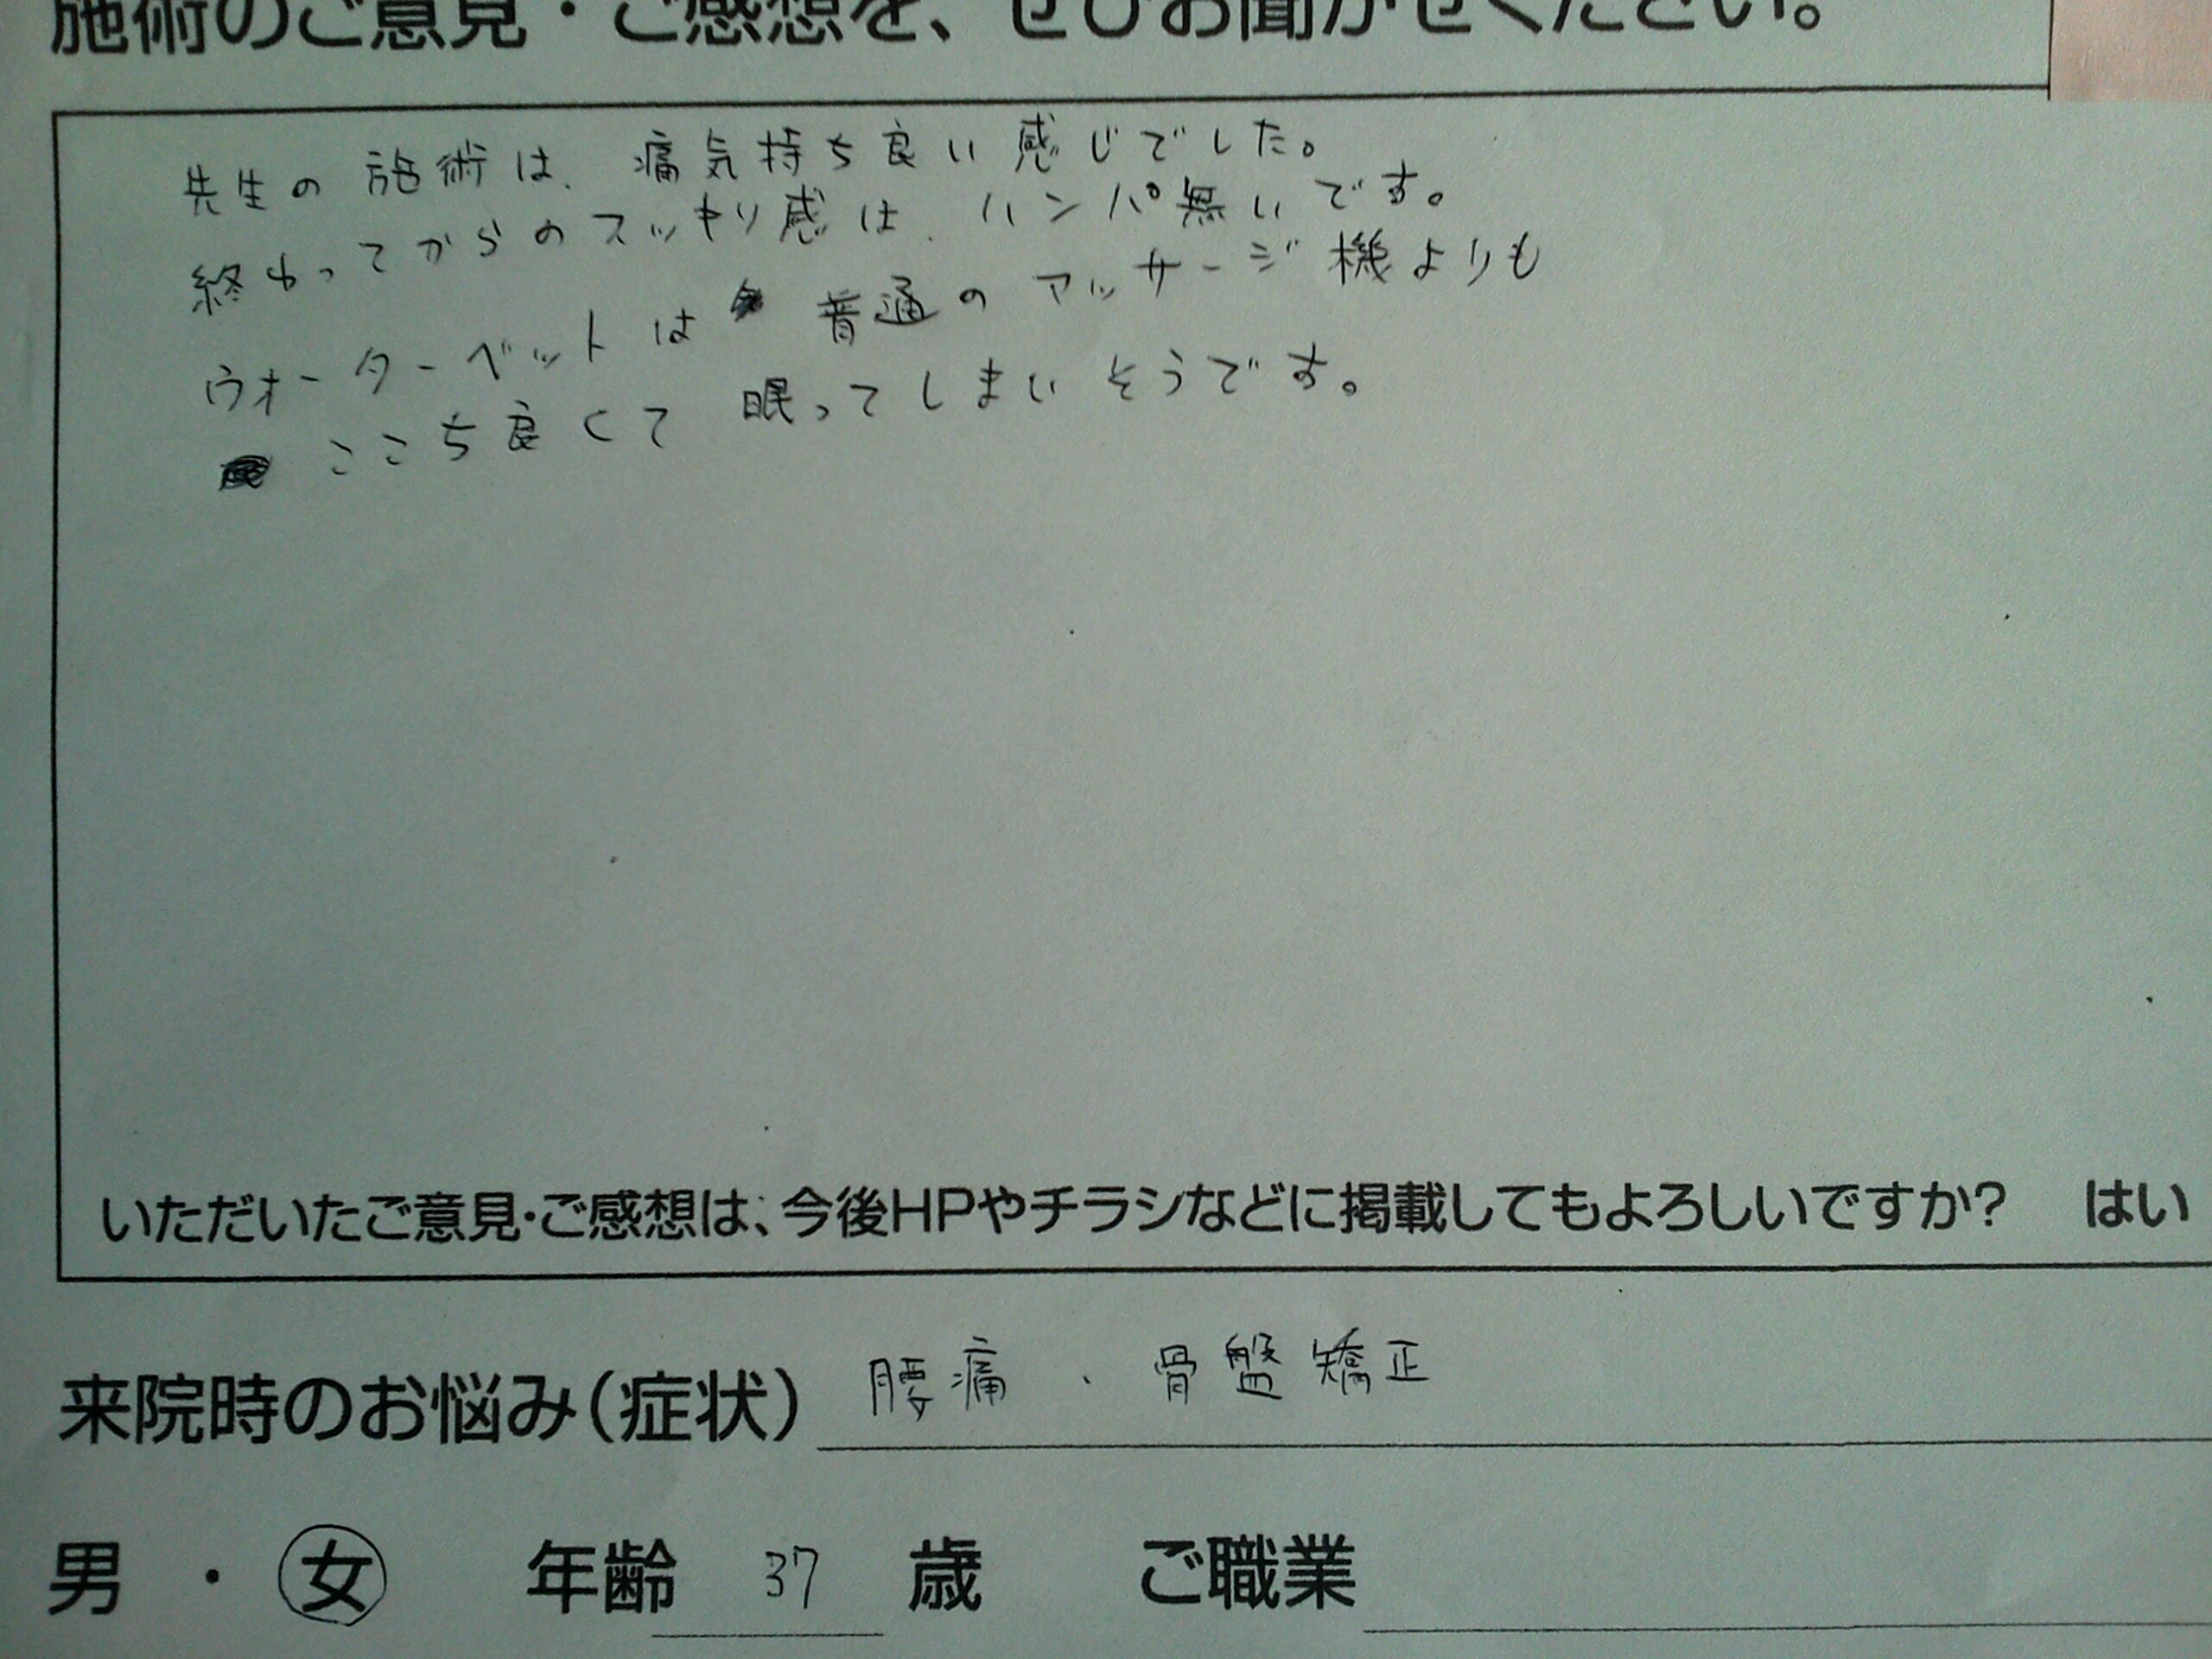 施術のご意見・ご感想を、ぜひお聞かせください。
先生の施術は、痛気持ち良い感じでした。
終わってからのスッキリ感は、ハンパ無いです。
ウォーターベットは普通のマッサージ機よりも
ここち良くて眠ってしまいそうです。
いただいたご意見・ご感想は、今後HPやチラシなどに掲載してもよろしいですか? はい
来院時のお悩み(症状) 腰痛・骨盤矯正
男・女 年齢 37 歳 ご職業